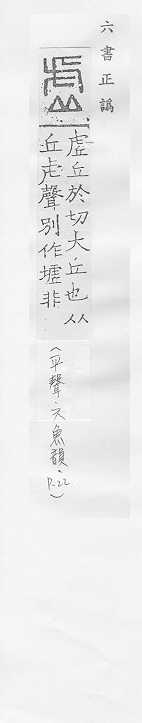 六書正譌
虛丘於切大丘也从
丘虍聲別作墟非
(平聲.六魚韻.
P.22)